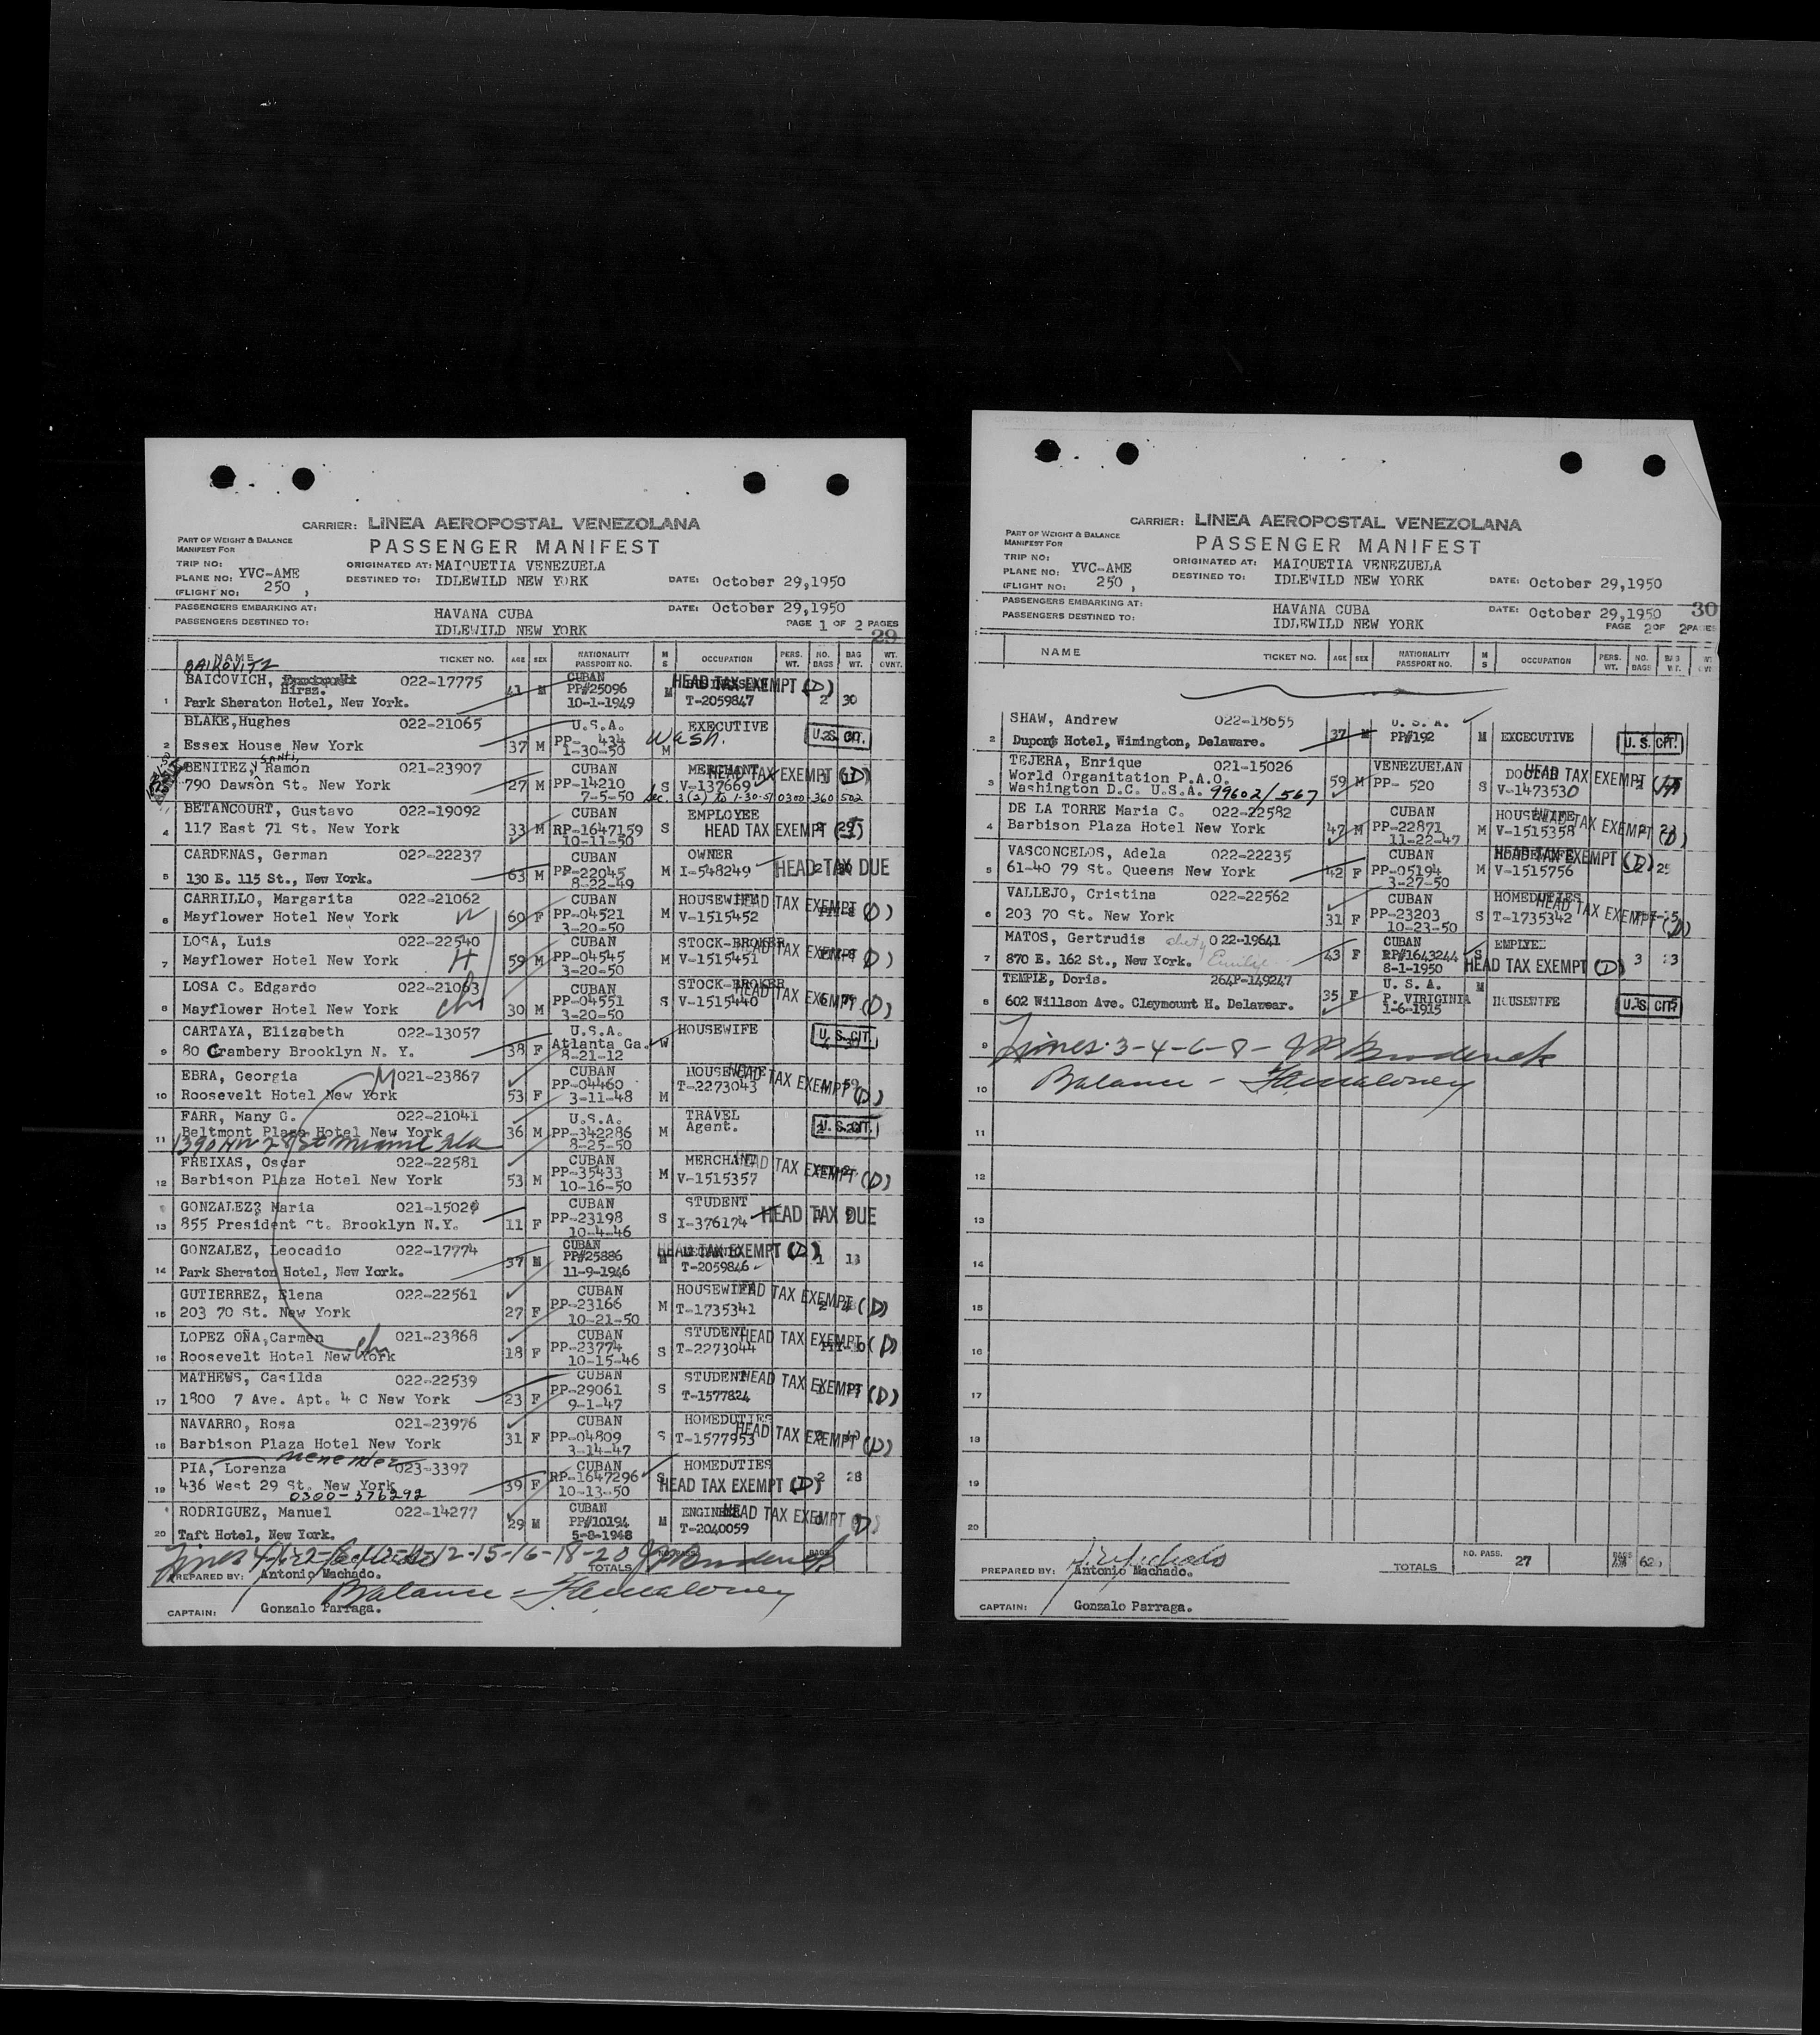 CARRIER: LINEA AEROPOSTAL VENEZOLANA
PART OF WEIGHT & BALANCE
MANIFEST FOR
PASSENGER MANIFEST
TRIP NO:
ORIGINATED AT: MAIQUETIA VENEZUELA
PLANE NO: YVC-AME
DESTINED TO: IDLEWILD NEW YORK DATE: October 29,1950
(FLIGHT NO: 250 ,
PASSENGERS EMBARKING AT: HAVANA CUBA DATE: October 29,1950
PASSENGERS DESTINED TO: IDLEWILD NEW YORK PAGE 1 OF 2 PAGES
29
NAME TICKET NO. AGE SEX NATIONALITY PASSPORT NO. M S OCCUPATION PERS. WT. NO. BAGS BAG WT. WT. OVNT.
BAIKOVITZ
BAICOVICH, 022-17775 CUBAN HEAD TAX EXEMPT (D)
Hirsz. 41 M PP#25096 M
1 Park Sheraton Hotel, New York. 10-1-1949 T-2059847 2 30
BLAKE,Hughes 022-21065 U.S.A. EXECUTIVE
2 Essex House New York 37 M PP- 434 Wash. U.S. CIT.
1-30-50 M
BENITEZ, Ramon 021-23907 CUBAN MERCHANT HEAD TAX EXEMPT (D)
790 Dawson St. New York 27 M PP-14210 S V-137669
7-5-50 Sec. 3(2) to 1-30-51 0300-360502
BETANCOURT, Gustavo 022-19092 CUBAN EMPLOYEE
4 117 East 71 St. New York 33 M RP-1647159 S HEAD TAX EXEMPT
10-11-50
CARDENAS, German 022-22237 CUBAN OWNER
5 130 E. 115 St., New York. 63 M PP-22045 M I-548249 HEAD TAX DUE
8-22-49
CARRILLO, Margarita 022-21062 CUBAN HOUSEWIFE HEAD TAX EXEMPT (D)
6 Mayflower Hotel New York 60 F PP-04521 M V-1515452
3-20-50
LOSA, Luis 022-22540 CUBAN STOCK-BROKER HEAD TAX EXEMPT (D)
7 Mayflower Hotel New York H 59 M PP-04545 M V-1515451
3-20-50
LOSA C. Edgardo 022-21063 CUBAN STOCK-BROKER HEAD TAX EXEMPT (D)
8 Mayflower Hotel New York 30 M PP-04551 S V-1515440
3-20-50
CARTAYA, Elizabeth 022-13057 U.S.A. HOUSEWIFE U.S. CIT.
9 80 Crambery Brooklyn N. Y. 38 F Atlanta Ga. W
8-21-12
EBRA, Georgia M 021-23867 CUBAN HOUSEWIFE HEAD TAX EXEMPT (D)
10 Roosevelt Hotel New York 53 F PP-04460 M T-2273043
3-11-48
FARR, Many G. 022-21041 U.S.A. TRAVEL
Beltmont Plaza Hotel New York 36 M PP-342286 M Agent. U.S. CIT.
11 1390 NW 28 St Miami Fla 8-25-50
FREIXAS, Oscar 022-22581 CUBAN MERCHANT HEAD TAX EXEMPT (D)
12 Barbison Plaza Hotel New York 53 M PP-35433 M V-1515357
10-16-50
GONZALEZ, Maria 021-1502 CUBAN STUDENT
13 855 President St. Brooklyn N.Y. 11 F PP-23198 S I-376174 HEAD TAX DUE
10-4-46
GONZALEZ, Leocadio 022-17774 CUBAN HEAD TAX EXEMPT (D)
14 Park Sheraton Hotel, New York. 37 M PP#25886 M T-2059846 1 13
11-9-1946
GUTIERREZ, Elena 022-22561 CUBAN HOUSEWIFE HEAD TAX EXEMPT (D)
15 203 70 St. New York 27 F PP-23166 M T-1735341
10-21-50
LOPEZ OÑA,Carmen 021-23868 CUBAN STUDENT HEAD TAX EXEMPT (D)
16 Roosevelt Hotel New York 18 F PP-23774 S T-2273044
10-15-46
MATHEWS, Casilda 022-22539 CUBAN STUDENT HEAD TAX EXEMPT (D)
17 1800 7 Ave. Apt. 4 C New York 23 F PP-29061 S T-1577824
9-1-47
NAVARRO, Rosa 021-23976 CUBAN HOMEDUTIES HEAD TAX EXEMPT (D)
18 Barbison Plaza Hotel New York 31 F PP-04809 S T-1577953
3-14-47
Menendez
PIA, Lorenza 023-3397 CUBAN HOMEDUTIES
19 436 West 29 St. New York 39 F RP-1647296 S HEAD TAX EXEMPT (D) 2 28
0300-376292 10-13-50
RODRIGUEZ, Manuel 022-14277 CUBAN ENGINEER HEAD TAX EXEMPT (D)
20 Taft Hotel, New York. 29 M PP#10194 M T-2040059
5-8-1948
12-15-16-18-20
TOTALS
PREPARED BY: Antonio Machado.
Balance -
CAPTAIN: Gonzalo Parraga.
CARRIER: LINEA AEROPOSTAL VENEZOLANA
PART OF WEIGHT & BALANCE
MANIFEST FOR
PASSENGER MANIFEST
TRIP NO:
ORIGINATED AT: MAIQUETIA VENEZUELA
PLANE NO: YVC-AME
DESTINED TO: IDLEWILD NEW YORK DATE: October 29,1950
(FLIGHT NO: 250 ,
PASSENGERS EMBARKING AT: HAVANA CUBA DATE: October 29,1950 30
PASSENGERS DESTINED TO: IDLEWILD NEW YORK PAGE 2 OF 2 PAGES
NAME TICKET NO. AGE SEX NATIONALITY PASSPORT NO. M S OCCUPATION PERS. WT. NO. BAGS BAG WT.
SHAW, Andrew 022-18655 U.S.A.
2 Dupont Hotel, Wimington, Delaware. 37 M PP#192 M EXCECUTIVE U.S. CIT.
TEJERA, Enrique 021-15026 VENEZUELAN
3 World Organitation P.A.O. 59 M PP- 520 S HEAD TAX EXEMPT
Washington D.C. U.S.A. 99602/567 V-1473530
DE LA TORRE Maria C. 022-22582 CUBAN HOUSEWIFE HEAD TAX EXEMPT (D)
4 Barbison Plaza Hotel New York 47 M PP-22871 M V-1515358
11-22-47
VASCONCELOS, Adela 022-22235 CUBAN HEAD TAX EXEMPT (D)
5 61-40 79 St. Queens New York 42 F PP-05194 M V-1515756 25
3-27-50
VALLEJO, Cristina 022-22562 CUBAN HOMEDUTIES HEAD TAX EXEMPT (D)
6 203 70 St. New York 31 F PP-23203 S T-1735342
10-23-50
MATOS, Gertrudis 022-19641 CUBAN EMPLYEE
7 870 E. 162 St., New York. 43 F RP#1643244 S HEAD TAX EXEMPT (D) 3
8-1-1950
TEMPLE, Doris. 264P-149247 U.S.A. M
8 602 Willson Ave. Cleymount H. Delawear. 35 F P. VIRIGINIA HOUSEWIFE U.S. CIT.
1-6-1915
9 Lines 3-4-6-8-
10 Balance -
11
12
13
14
15
16
17
18
19
20
TOTALS NO. PASS. 27
PREPARED BY: Antonio Machado.
CAPTAIN: Gonzalo Parraga.